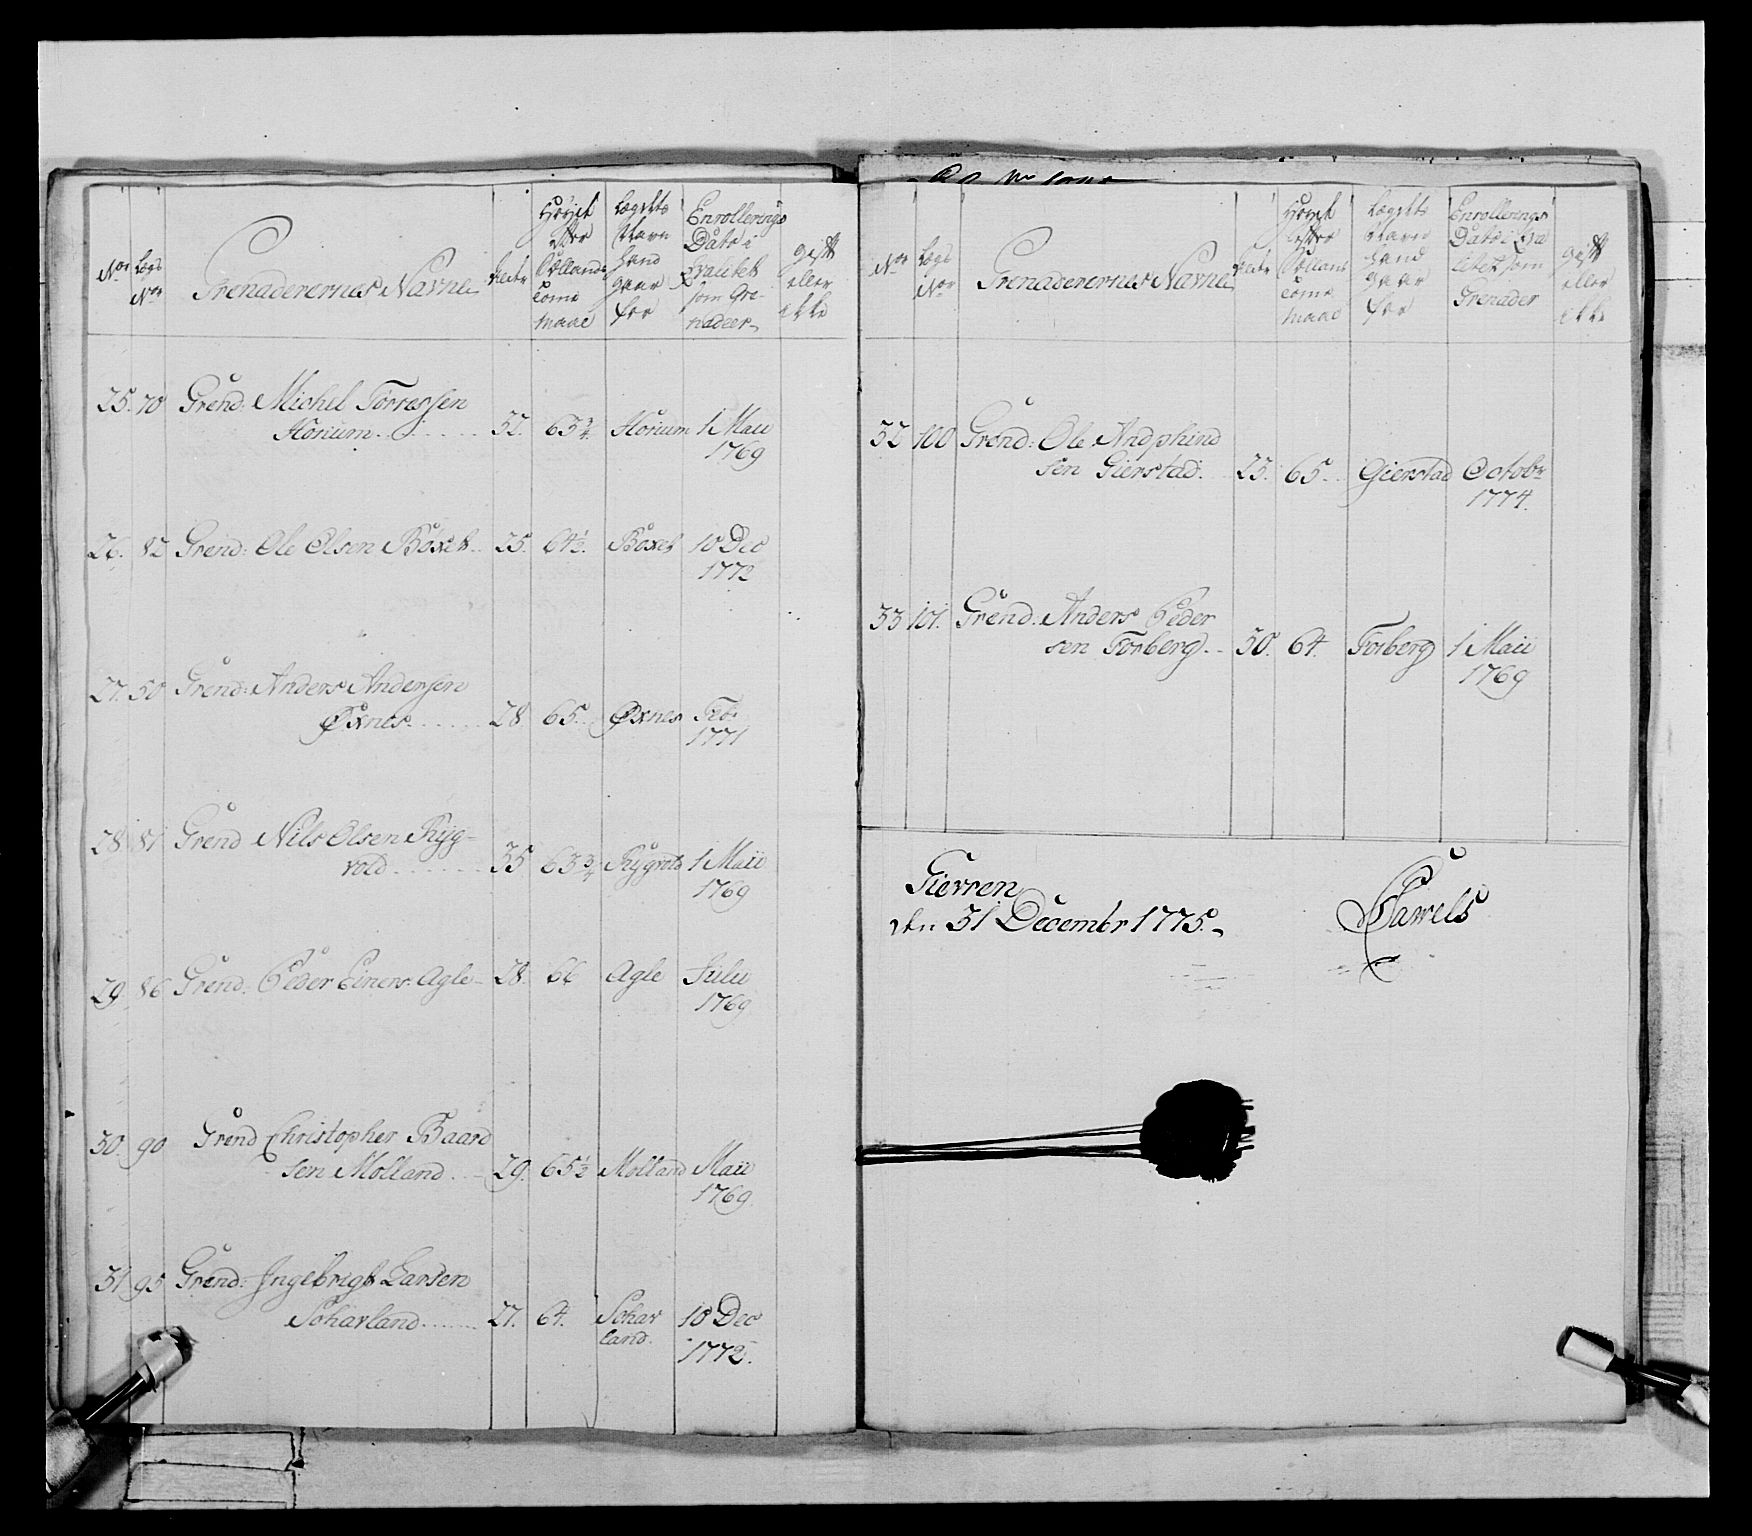 No:
Legs No:
Grenaderernes Navne
Alder
Høyet efter Sællands Tomme maal
Lægets Navn hand gaar for
Enrollerings Dato i Qvalitet som Grenadeer
gift eller ikke
25. 70 Grend: Michel Torressen
Horium 32. 63 3/4. Horium 1 Maii
1769
26. 82 Grend: Ole Olsen Boxet 25. 64 1/2. Boxet 10 Dec
1772
27. 50 Grend: Anders Andersen
Øxnes 28 65. Øxnes Feb:
1771
28 81 Grend Nils Olsen Ryg-
vold 35 63 3/4 Rygvold 1 Maii
1769
29 86 Grend: Peder Einers: Agle 28. 66 Agle Julii
1769
30. 90 Grend Christopher Baard
sen Molland 29. 65 1/2 Molland Maii
1769
31 95 Grend: Ingebrigt Larsen
Soharland 27. 64. Sohar 10 Dec
land. 1772.
No:
Legs No:
Grenaderernes Navne
Alder
Høyet efter Sællans Tomme maal
Lægets Navn hand gaar for
Enrollerings Dato i Qva litet som Grenader
gift eller ikke
32 100 Grend: Ole Andphind
sen Gierstad. 23. 65. Gierstad Octobr
1774.
33 101. Grend: Anders Peder
sen Forberg 30. 64. Forberg 1 Maii
1769
Gierren
den 31 Decembr 1775.
Pawels